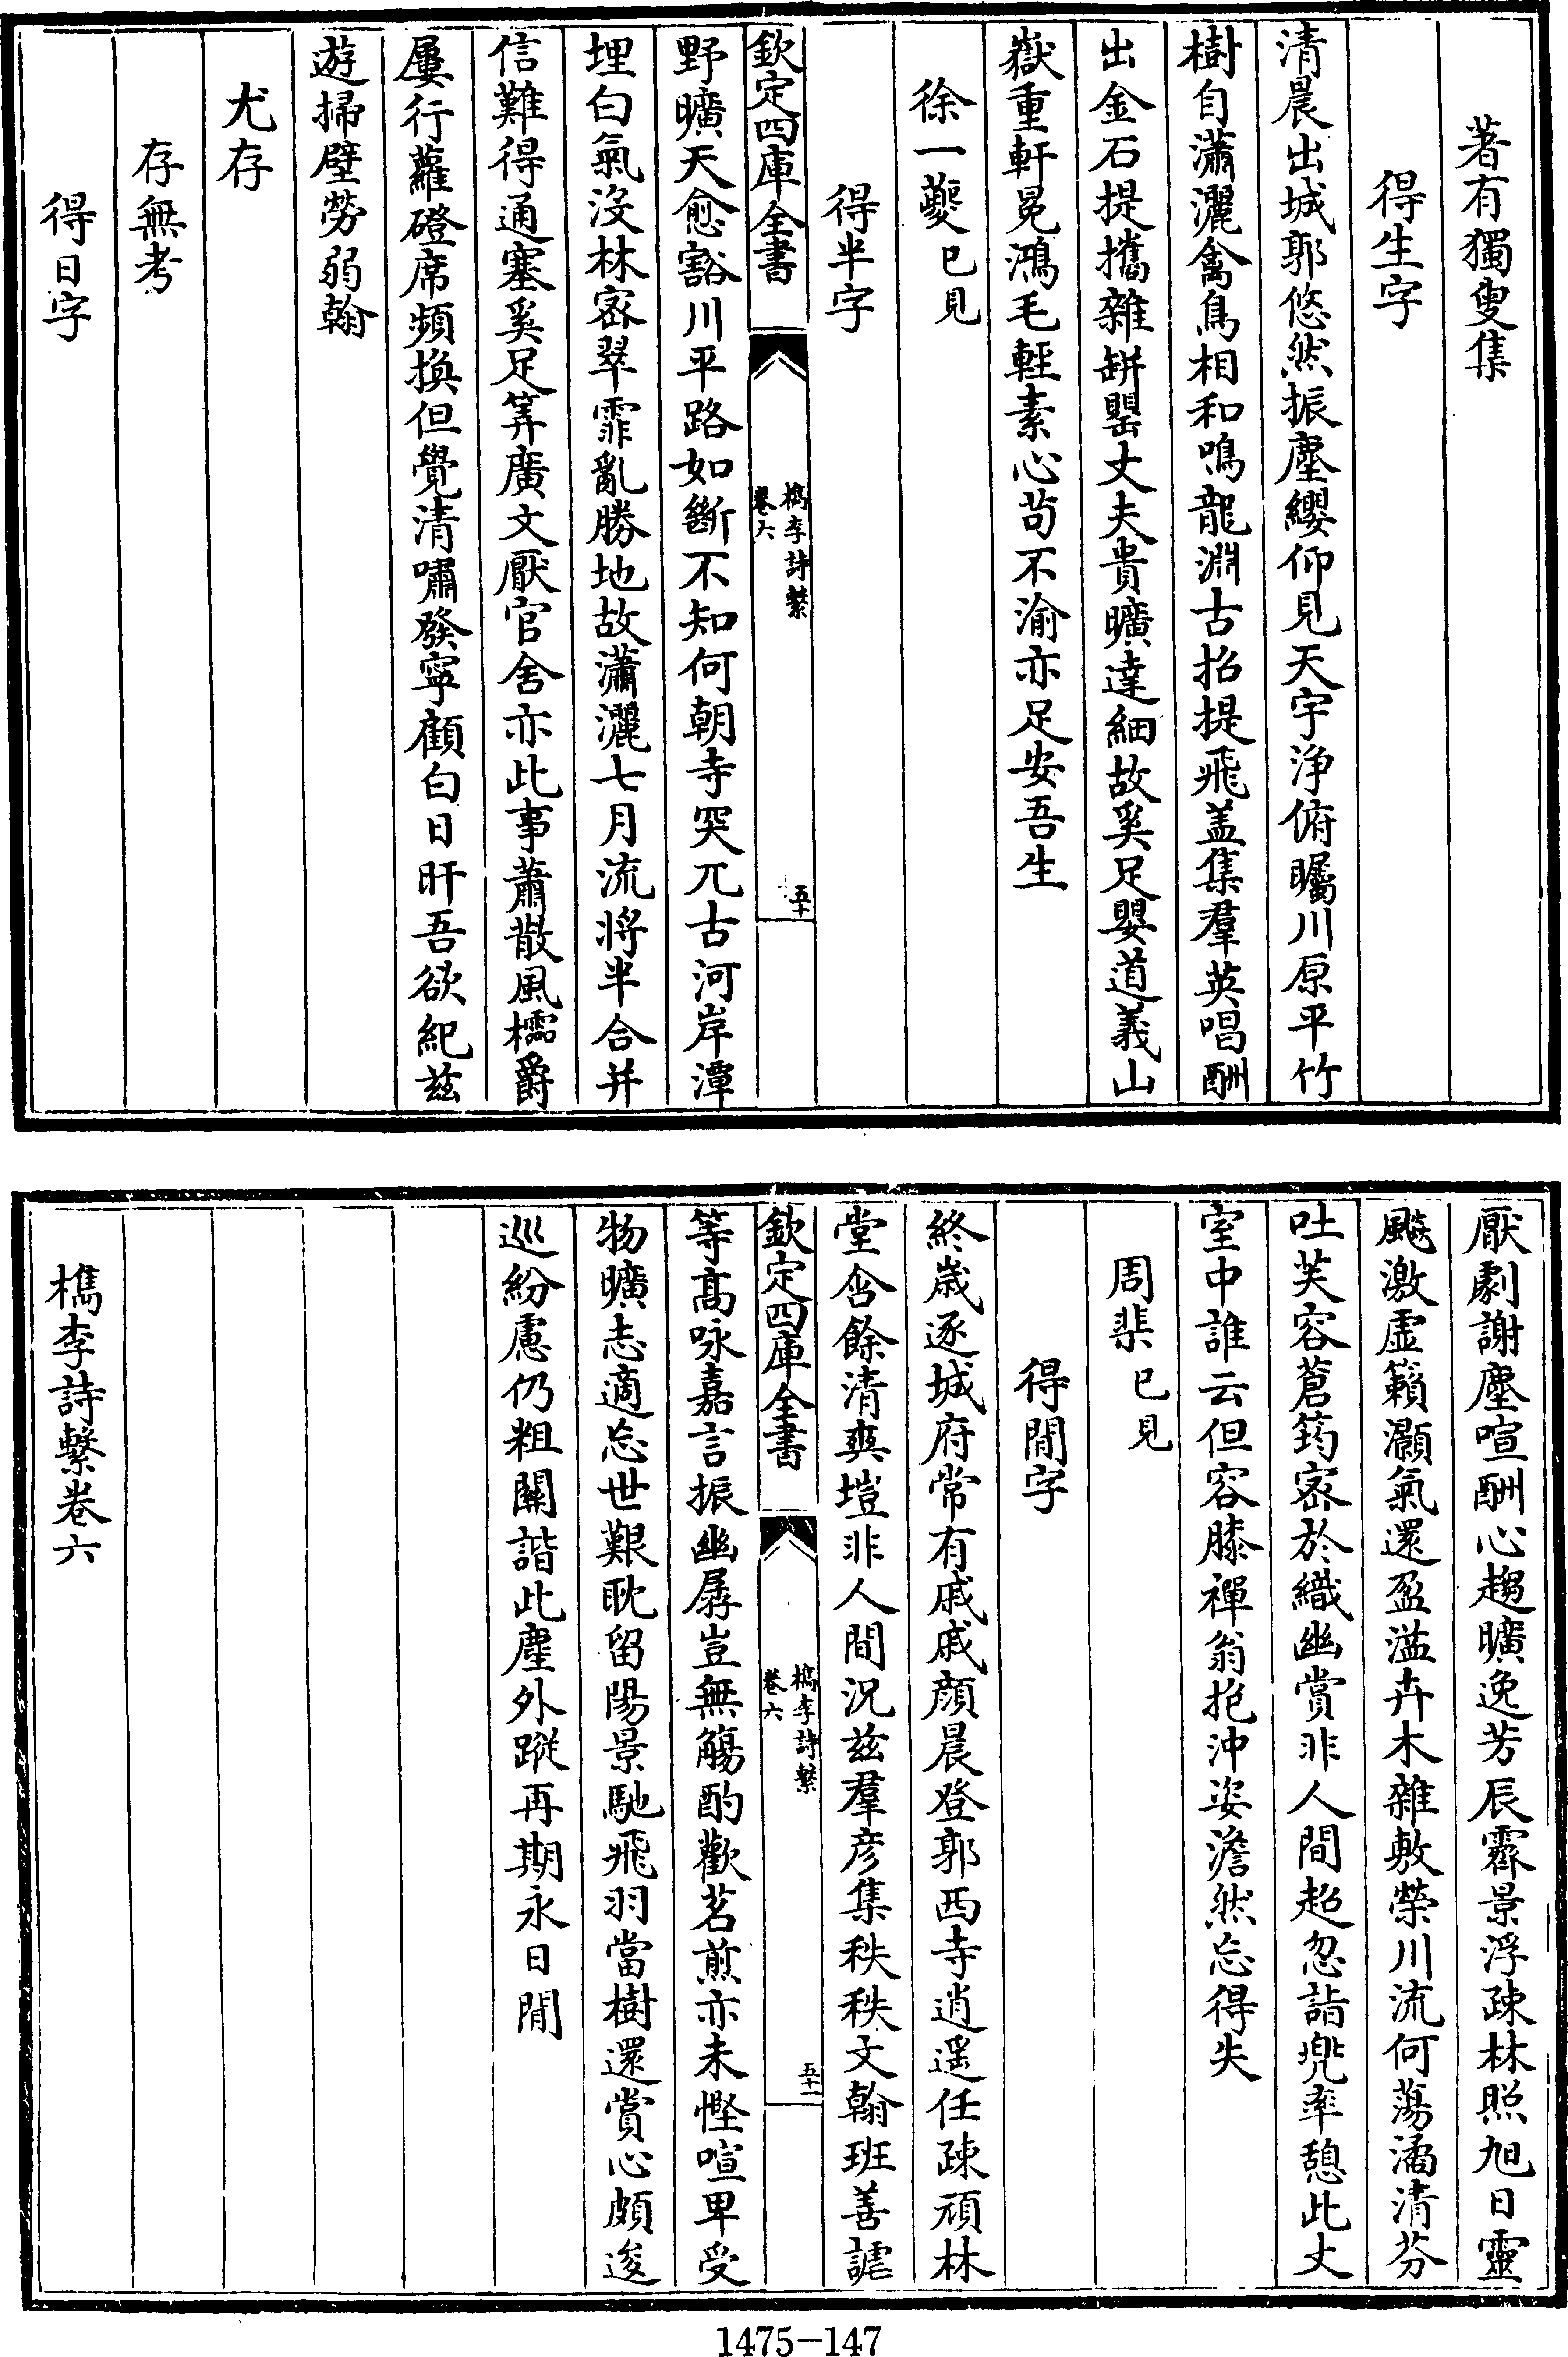 著有獨叟集
得生字
清晨出城郭悠然振塵纓仰見天宇浄俯矚川原平竹
樹自瀟灑禽鳥相和鳴龍淵古招提飛盖集羣英唱酬
出金石提攜雜缾罌丈夫貴曠達細故奚足嬰道義山
嶽重軒冕鴻毛輕素心苟不渝亦足安吾生
徐一夔已見
得半字
欽定四庫全書
檇李詩繫
卷六
五十
野曠天愈豁川平路如斷不知何朝寺突兀古河岸潭
埋白氣沒林宻翠霏亂勝地故瀟灑七月流將半合并
信難得通塞奚足筭廣文厭官舍亦此事蕭散風檽爵
屢行蘿磴席頻換但覺清嘯發寧顧白日旰吾欲紀茲
遊掃壁勞弱翰
尤存
存無考
得日字
厭劇謝塵喧酬心趨曠逸芳辰霽景浮疎林照旭日靈
飈激虛籟灝氣還盈溢卉木雜敷榮川流何蕩潏清芬
吐芙容蒼筠宻於織幽賞非人間超忽詣兜率憩此丈
室中誰云但容膝禪翁抱沖姿澹然忘得失
周棐已見
得閒字
終歲逐城府常有戚戚顔晨登郭西寺逍遥任疎頑林
堂含餘清爽塏非人間況茲羣彦集秩秩文翰班善謔
等高咏嘉言振幽孱豈無觴酌歡茗煎亦未慳喧卑受
物曠志適忘世艱耽留陽景馳飛羽當樹還賞心頗逡
巡紛慮仍粗關諧此塵外蹤再期永日閒
欽定四庫全書
檇李詩繫
卷六
五十一
檇李詩繫卷六
1475-147